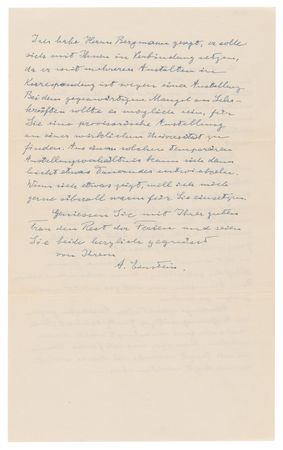 Ich habe Herrn Bergmann gesagt, er solle
sich mit Ihnen in Verbindung setzen,
da er mit mehreren Anstalten in
Korrespondenz ist wegen einer Anstellung.
Bei dem gegenwärtigen Mangel an Lehr-
kräften sollte es möglich sein, für
Sie eine provisorische Anstellung
an einer wirklichen Universität zu
finden. Aus einem solchen temporären
Anstellungsverhältnis kann sich dann
leicht etwas Dauerndes entwickeln.
Wenn sich etwas zeigt, will ich mich
gerne überall warm für Sie einsetzen.
Geniessen Sie mit Ihrer guten
Frau den Rest der Ferien und seien
Sie beide herzlich gegrüsst
von Ihrem
A. Einstein.